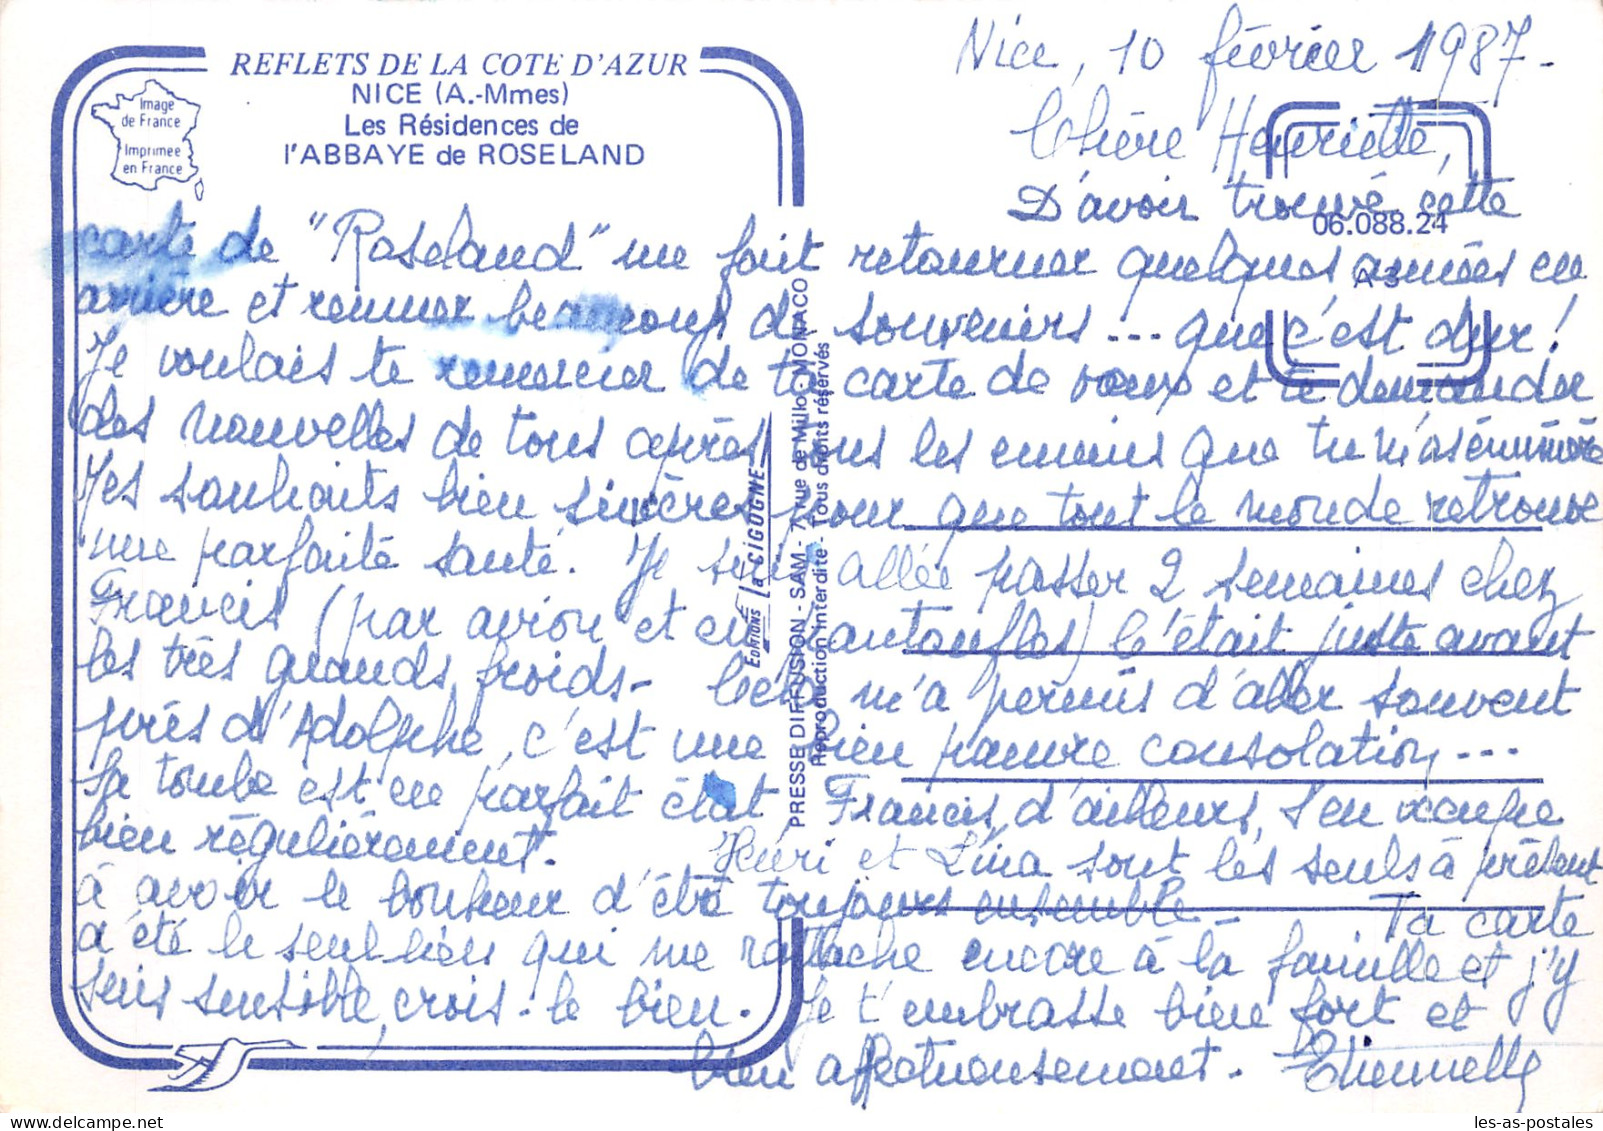 REFLETS DE LA COTE D'AZUR
NICE (A.-Mmes)
Les Résidences de
l'ABBAYE de ROSELAND
Image
de France
Imprimée
en France
Nice, 10 février 1987-
Chère Henriette,
D'avoir trouvé cette
06.088.24
carte de "Roseland" me fait retourner quelques années en
A 3
arrière et remuer beaucoup de souvenirs... que c'est dur!
Je voulais te remercier de ta carte de vœux et te demander
des nouvelles de tous après tous les ennuis que tu m'as énuméré
Mes souhaits bien sincères pour que tout le monde retrouve
une parfaite santé. Je suis allée passer 2 semaines chez
Francis (par avion et en pantoufles) C'était juste avant
les très grands froids- Cela m'a permis d'aller souvent
près d'Adolphe, c'est une bien pauvre consolation---
Sa tombe est en parfait état Francis, d'ailleurs, s'en occupe
bien régulièrement. Henri et Lina sont les seuls à présent
à avoir le bonheur d'être toujours ensemble- Ta carte
a été le seul lien qui me rattache encore à la famille et j'y
suis sensible, crois-le bien. Je t'embrasse bien fort et
bien affectueusement. Etiennette
EDITIONS La CIGOGNE
PRESSE DIFFUSION - SAM - 7, rue de Millo, MONACO
Reproduction interdite - Tous droits réservés
les-as-postales